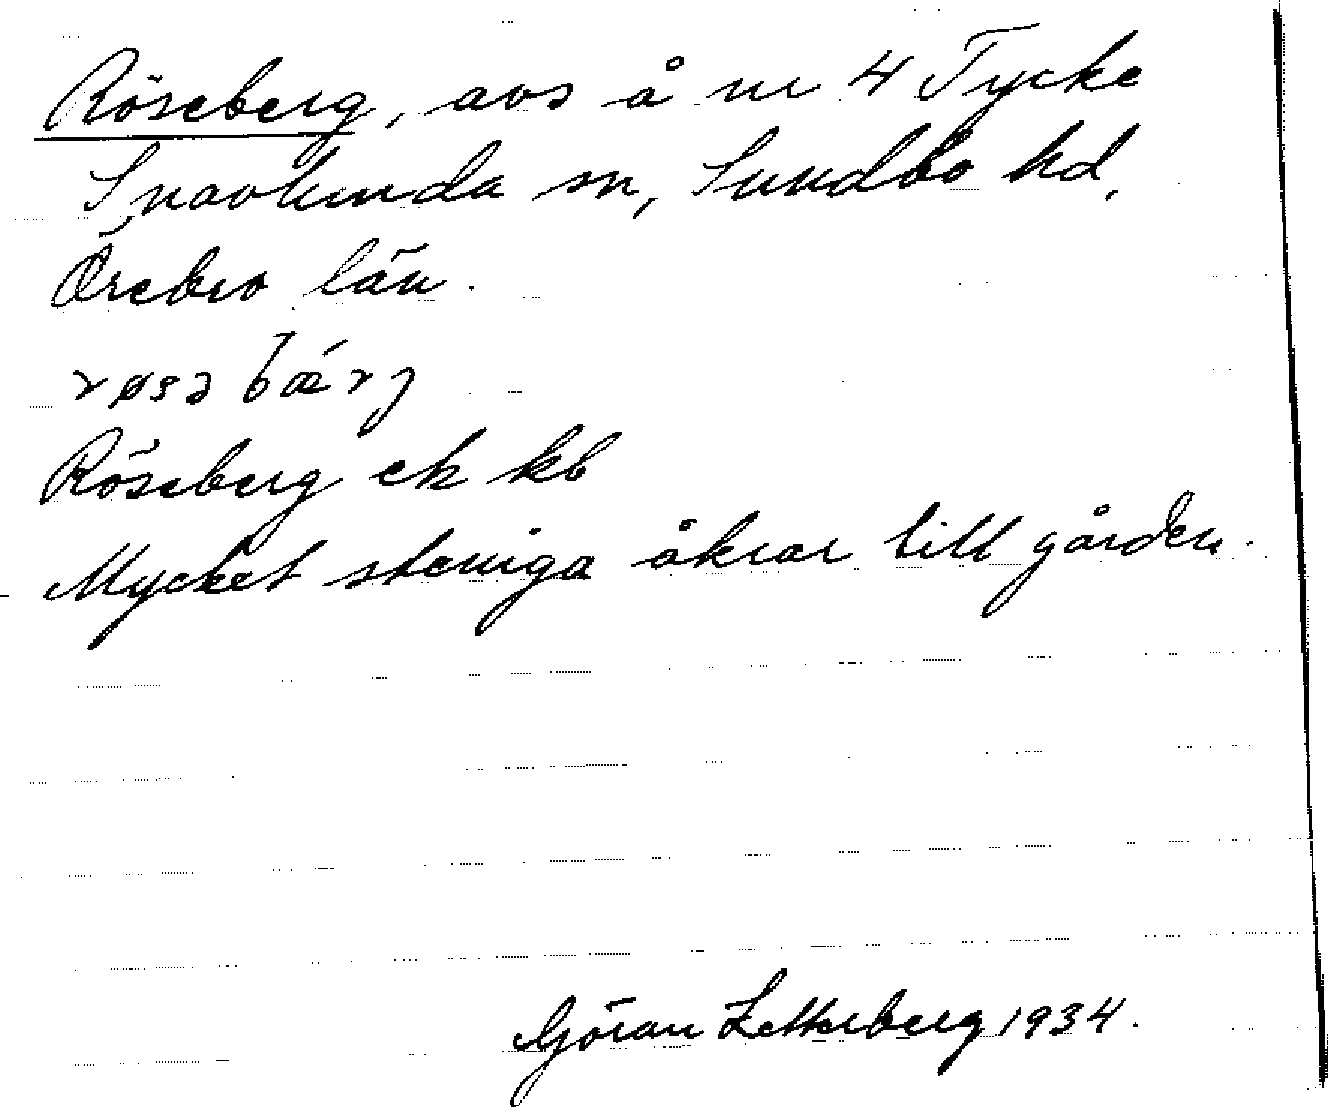 Röseberg, avs å nr 4 Tycke
Snavlunda sn, Sundbo hd,
Örebro län.
røsə bǽrj
Röseberg ek kb
Mycket steniga åkrar till gården.
Göran Zetterberg 1934.